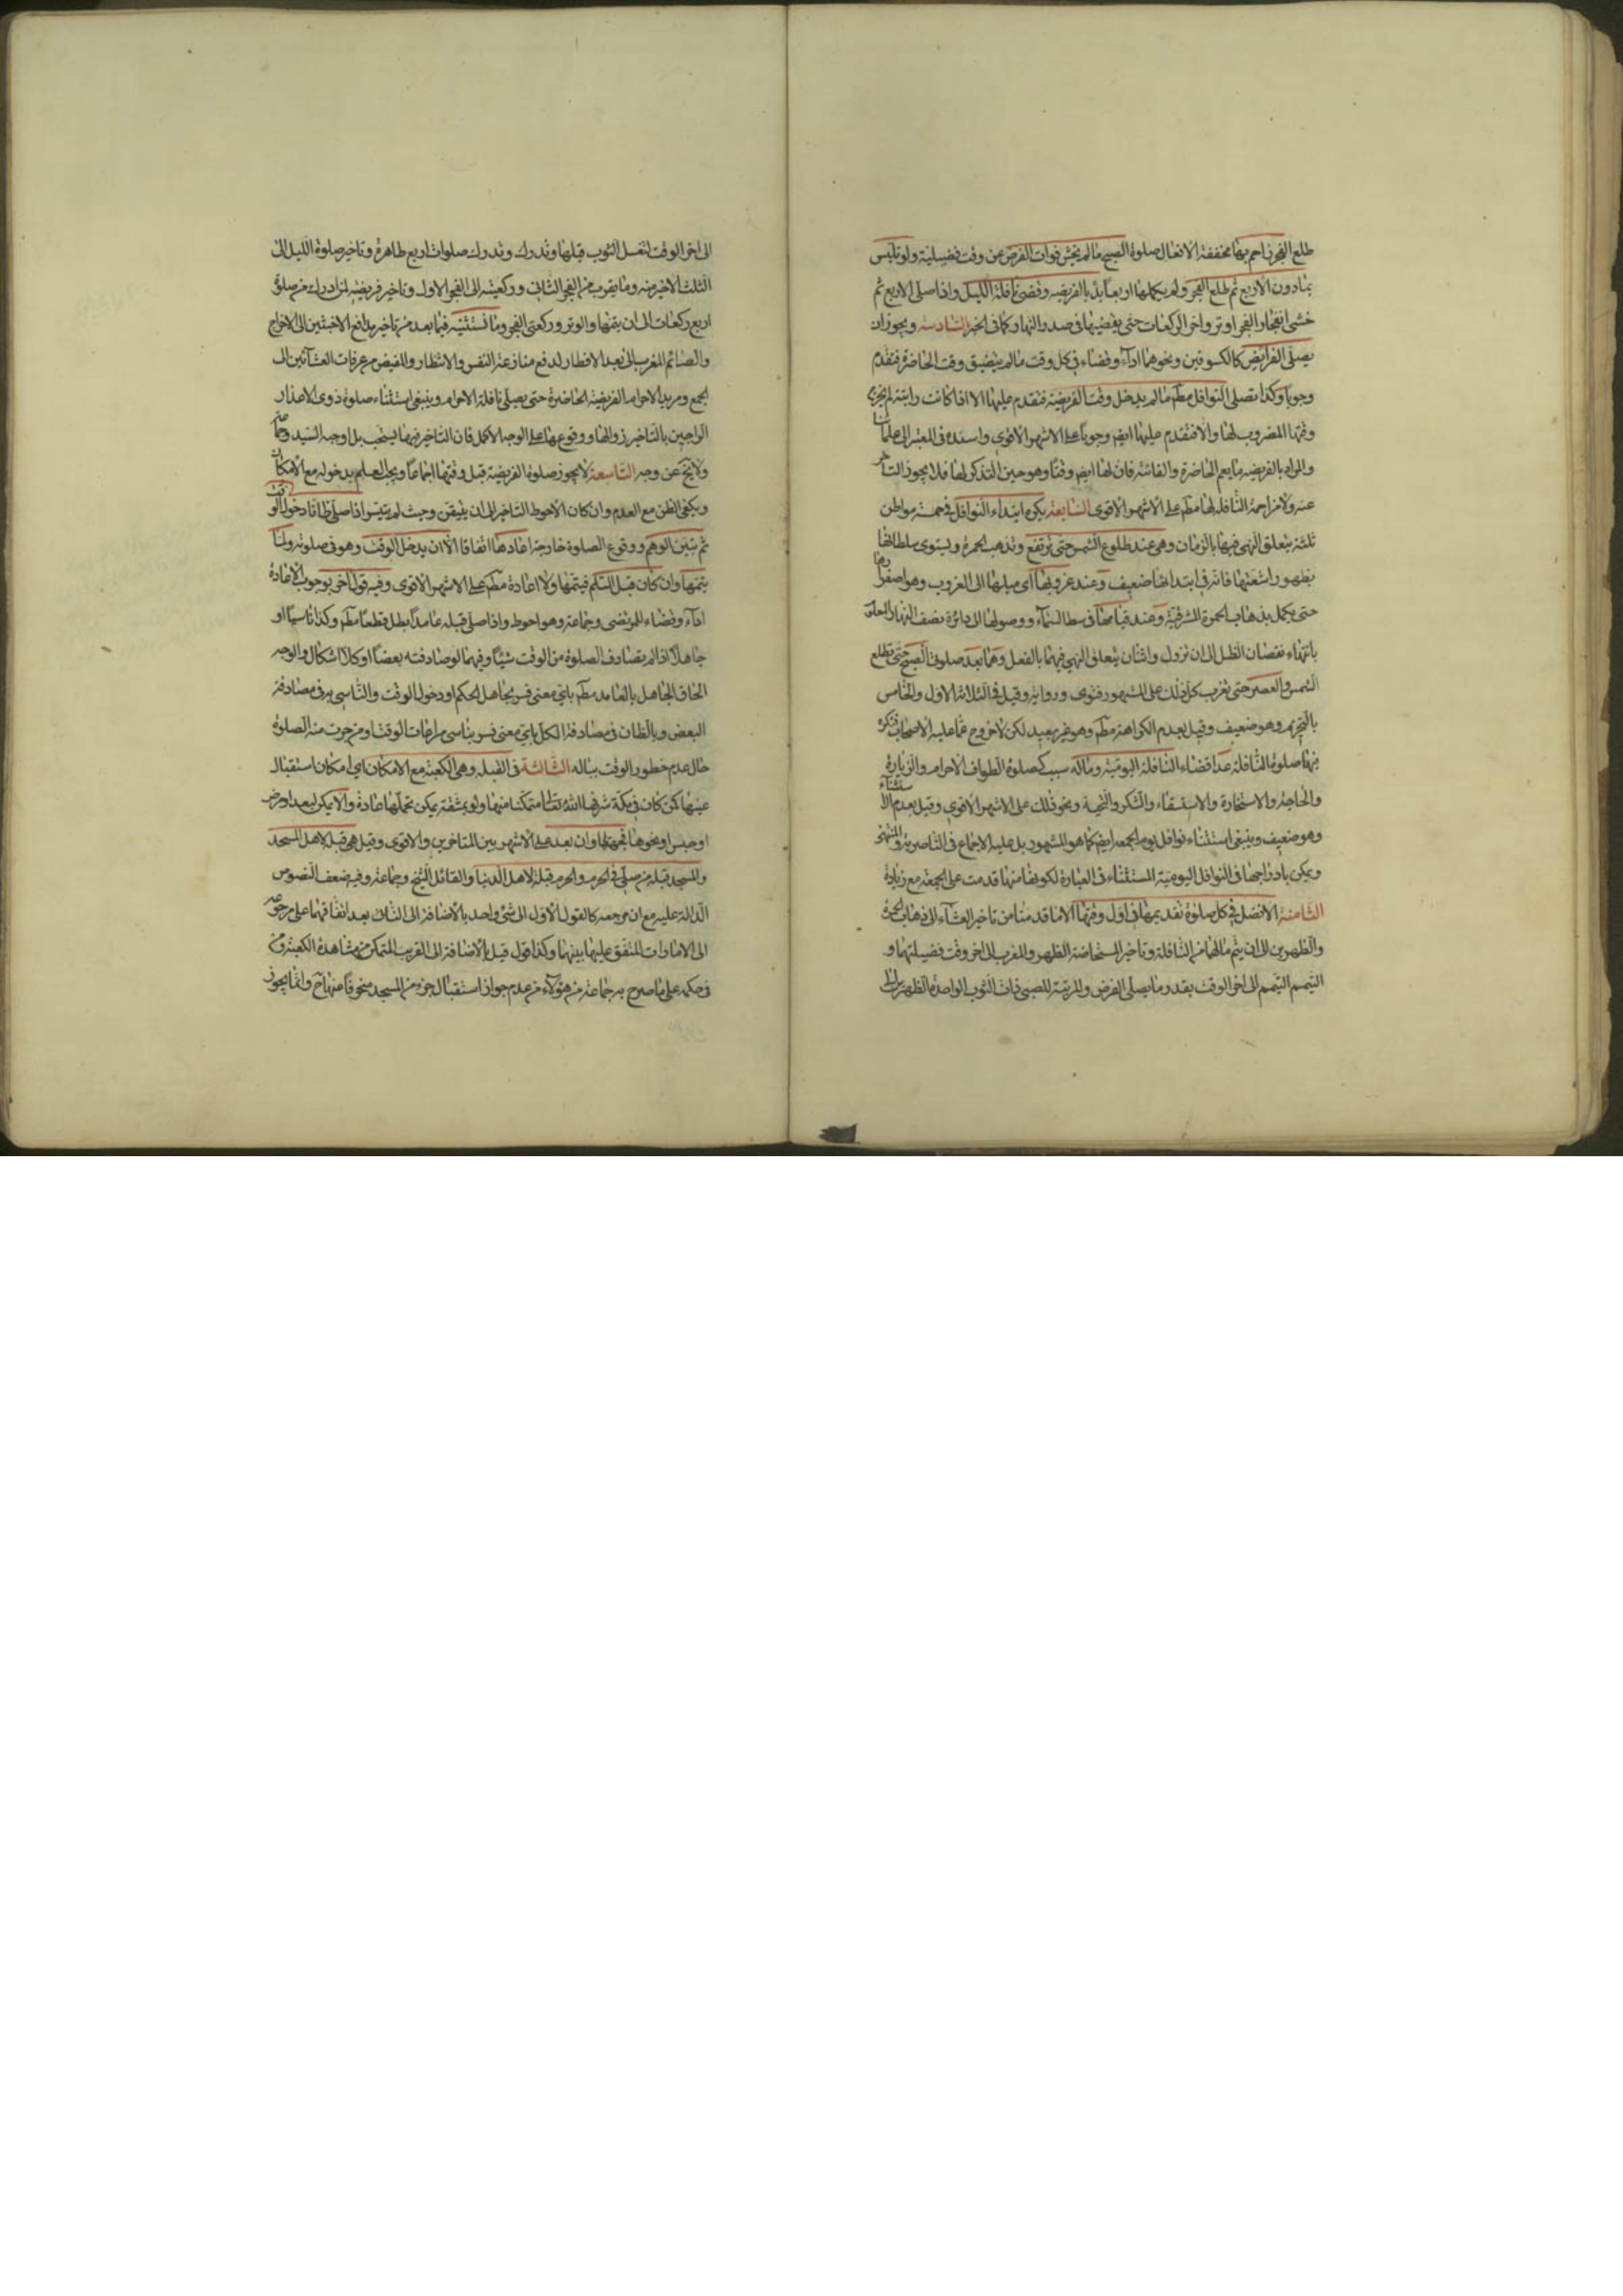 طلع الفجر زاحم بها مخففة الافعال صلوة الصبح ما لم يخش فوات الفرض عن وقت فضيلته ولو تلبس
بمادون الاربع ثم طلع الفجر ولم يكملها اربعا بدا بالفريضه وقضى نافلة الليل واذا صلى الاربع ثم
خشى انفجار الفجر اوتر واخر الركعات حتى يقضيها فى صدر النهار كما فى الخبر السادسة ويجوز ان
يصلى الفرايض كالكسوفين ونحوهما اداء وقضاء فى كل وقت ما لم يتضيق وقت الحاضرة فتقدم
وجوبا وكذا تصلى النوافل مطم ما لم يدخل وقت الفريضة فتقدم عليها الا اذا كانت راتبة لم يخرج
وقتها المضروب لها والا فتقدم عليها ايضم وجوبا على الاشهر الاقوى واسنده فى المعتبر الى علمائنا
والمراد بالفريضه ما يعم الحاضرة والفائتة فان لها ايضم وقتا وهو حين التذكر لها فلا يجوز التاخر
عنه ولا مزاحمة النافلة لها مطم على الاشهر الاقوى السابعة يكره ابتداء النوافل فى خمسة مواطن
ثلثة يتعلق النهى فيها بالزمان وهى عند طلوع الشمس حتى ترتفع وتذهب الحمرة ويستوى سلطانها
بظهور اشعتها فانه فى ابتدائها ضعيف وعند غروبها اى ميلها الى الغروب وهو اصفرارها
حتى يكمل بذهاب الحمرة المشرقية وعند قيامها فى وسط السماء ووصولها الى دائرة نصف النهار المعلوم
بانتهاء نقصان الظل الى ان تزول واثنان يتعلق النهى فيهما بالفعل وهما بعد صلوتى الصبح حتى تطلع
الشمس والعصر حتى تغرب كل ذلك على المشهور فتوى ورواية وقيل فى الثلاثة الاول والخامس
بالتحريم وهو ضعيف وقيل بعدم الكراهة مطم وهو غير بعيد لكن لا خروج عما عليه الاصحاب فتكره
فيها صلوة النافلة عدا قضاء النافلة اليومية وما له سبب كصلوة الطواف الاحرام والزيارة
والحاجة والاستخارة والاستسقاء والشكر والتحية ونحو ذلك على الاشهر الاقوى وقيل بعدم الاستثناء
وهو ضعيف وينبغى استثناء نوافل يوم الجمعه ايضم كما هو المشهور بل عليه الاجماع فى الناصرية والمنتهى
ويمكن بادراجها فى النوافل اليومية المستثناة فى العبارة لكونها منها قدمت على الجمعة مع زيادة
الثامنة الافضل فى كل صلوة تقديمها فى اول وقتها الا ما قدمنا من تاخير العشاء الى ذهاب الحمرة
والظهرين الى ان يتم ما لهما من النافلة وتاخير المستحاضة الظهر والمغرب الى اخر وقت فضيلتهما و
التيمم الى اخر الوقت بقدر ما يصلى الفرض والمربية للصبى ذات الثوب الواحدة الظهرين الى
الى اخر الوقت لتغسل الثوب قبلها وتدرك صلوات اربع طاهرة وتاخير صلوة الليل الى
الثلث الاخير منه وما يقرب من الفجر الثانى وركعيتيه الى الفجر الاول وتاخير فريضة لمن ادرك من صلوة
اربع ركعات الى ان يتمها والوتر وركعتى الفجر وما نستثنيه فيما بعد من تاخير مدافع الاخبثين الى الاخراج
والصائم المغرب الى بعد الافطار لدفع منازعة النفس والانتظار والمفيض من عرفات العشائين الى
الجمع ومريد الاحرام الفريضة الحاضرة حتى يصلى نافلة الاحرام وينبغى استثناء صلوة ذوى الاعذار
الراجين بالتاخير زوالها ووقوعها على الوجه الاكمل فان التاخير فيها يستحب بل اوجبه السيد وجماعة
ولا يخ عن وجه التاسعة لا يجوز صلوة الفريضة قبل وقتها اجماعا ويجب العلم بدخوله مع الامكان
ويكفى الظن مع العدم وان كان الاحوط التاخير الى ان يتيقن وحيث لم يتيسر اذا صلى ظانا دخول الوقت
ثم تبين الوهم ووقوع الصلوة خارجة اعادها اتفاقا الا ان يدخل الوقت وهو فى صلوته ولما
يتمها وان كان قبل التسلم فيتمها ولا اعادة مطم على الاشهر الاقوى وفيه قول اخر بوجوب الاعادة
اداء وقضاء للمرتضى وجماعة وهو احوط واذا صلى قبله عامدا بطل قطعا مطم وكذا ناسيا او
جاهلا اذا لم يصادف الصلوة من الوقت شيئا وفيما لو صادفته بعضا او كلا اشكال والوجه
الحاق الجاهل بالعامد مطم باى معنى فسر بجاهل الحكم او دخول الوقت والناسى به فى مصادفة
البعض وبالظان فى مصادفة الكل باى معنى فسر بناسى مراعات الوقت او من جرت منه الصلوة
حال عدم خطور الوقت بباله الثالثة فى القبله وهى الكعبة مع الامكان اى امكان استقبال
عينها كمن كان فى مكة شرفها الله تعالى متمكنا منها ولو بمشقة يمكن تحملها عادة والا يمكن لبعد او مرض
او حبس او نحوها فجهتها وان بعد على الاشهر بين المتاخرين والاقوى وقيل هى قبلة لاهل المسجد
والمسجد قبلة من صلى فى الحرم والحرم قبلة لاهل الدنيا والقائل الشيخ وجماعة وفيه ضعف النصوص
الدالة عليه مع ان مرجعه كالقول الاول الى شئ واحد بالاضافة الى النائى بعد اتفاقهما على رجوعه
الى الامارات المتفق عليها بينهما وكذا قول قيل بالاضافة الى القريب المتمكن من مشاهدة الكعبة ومن
فى حكمه على ما صرح به جماعة من هؤلاء من عدم جواز استقبال جزء من المسجد منحرفا عنها ح وانما يجوز